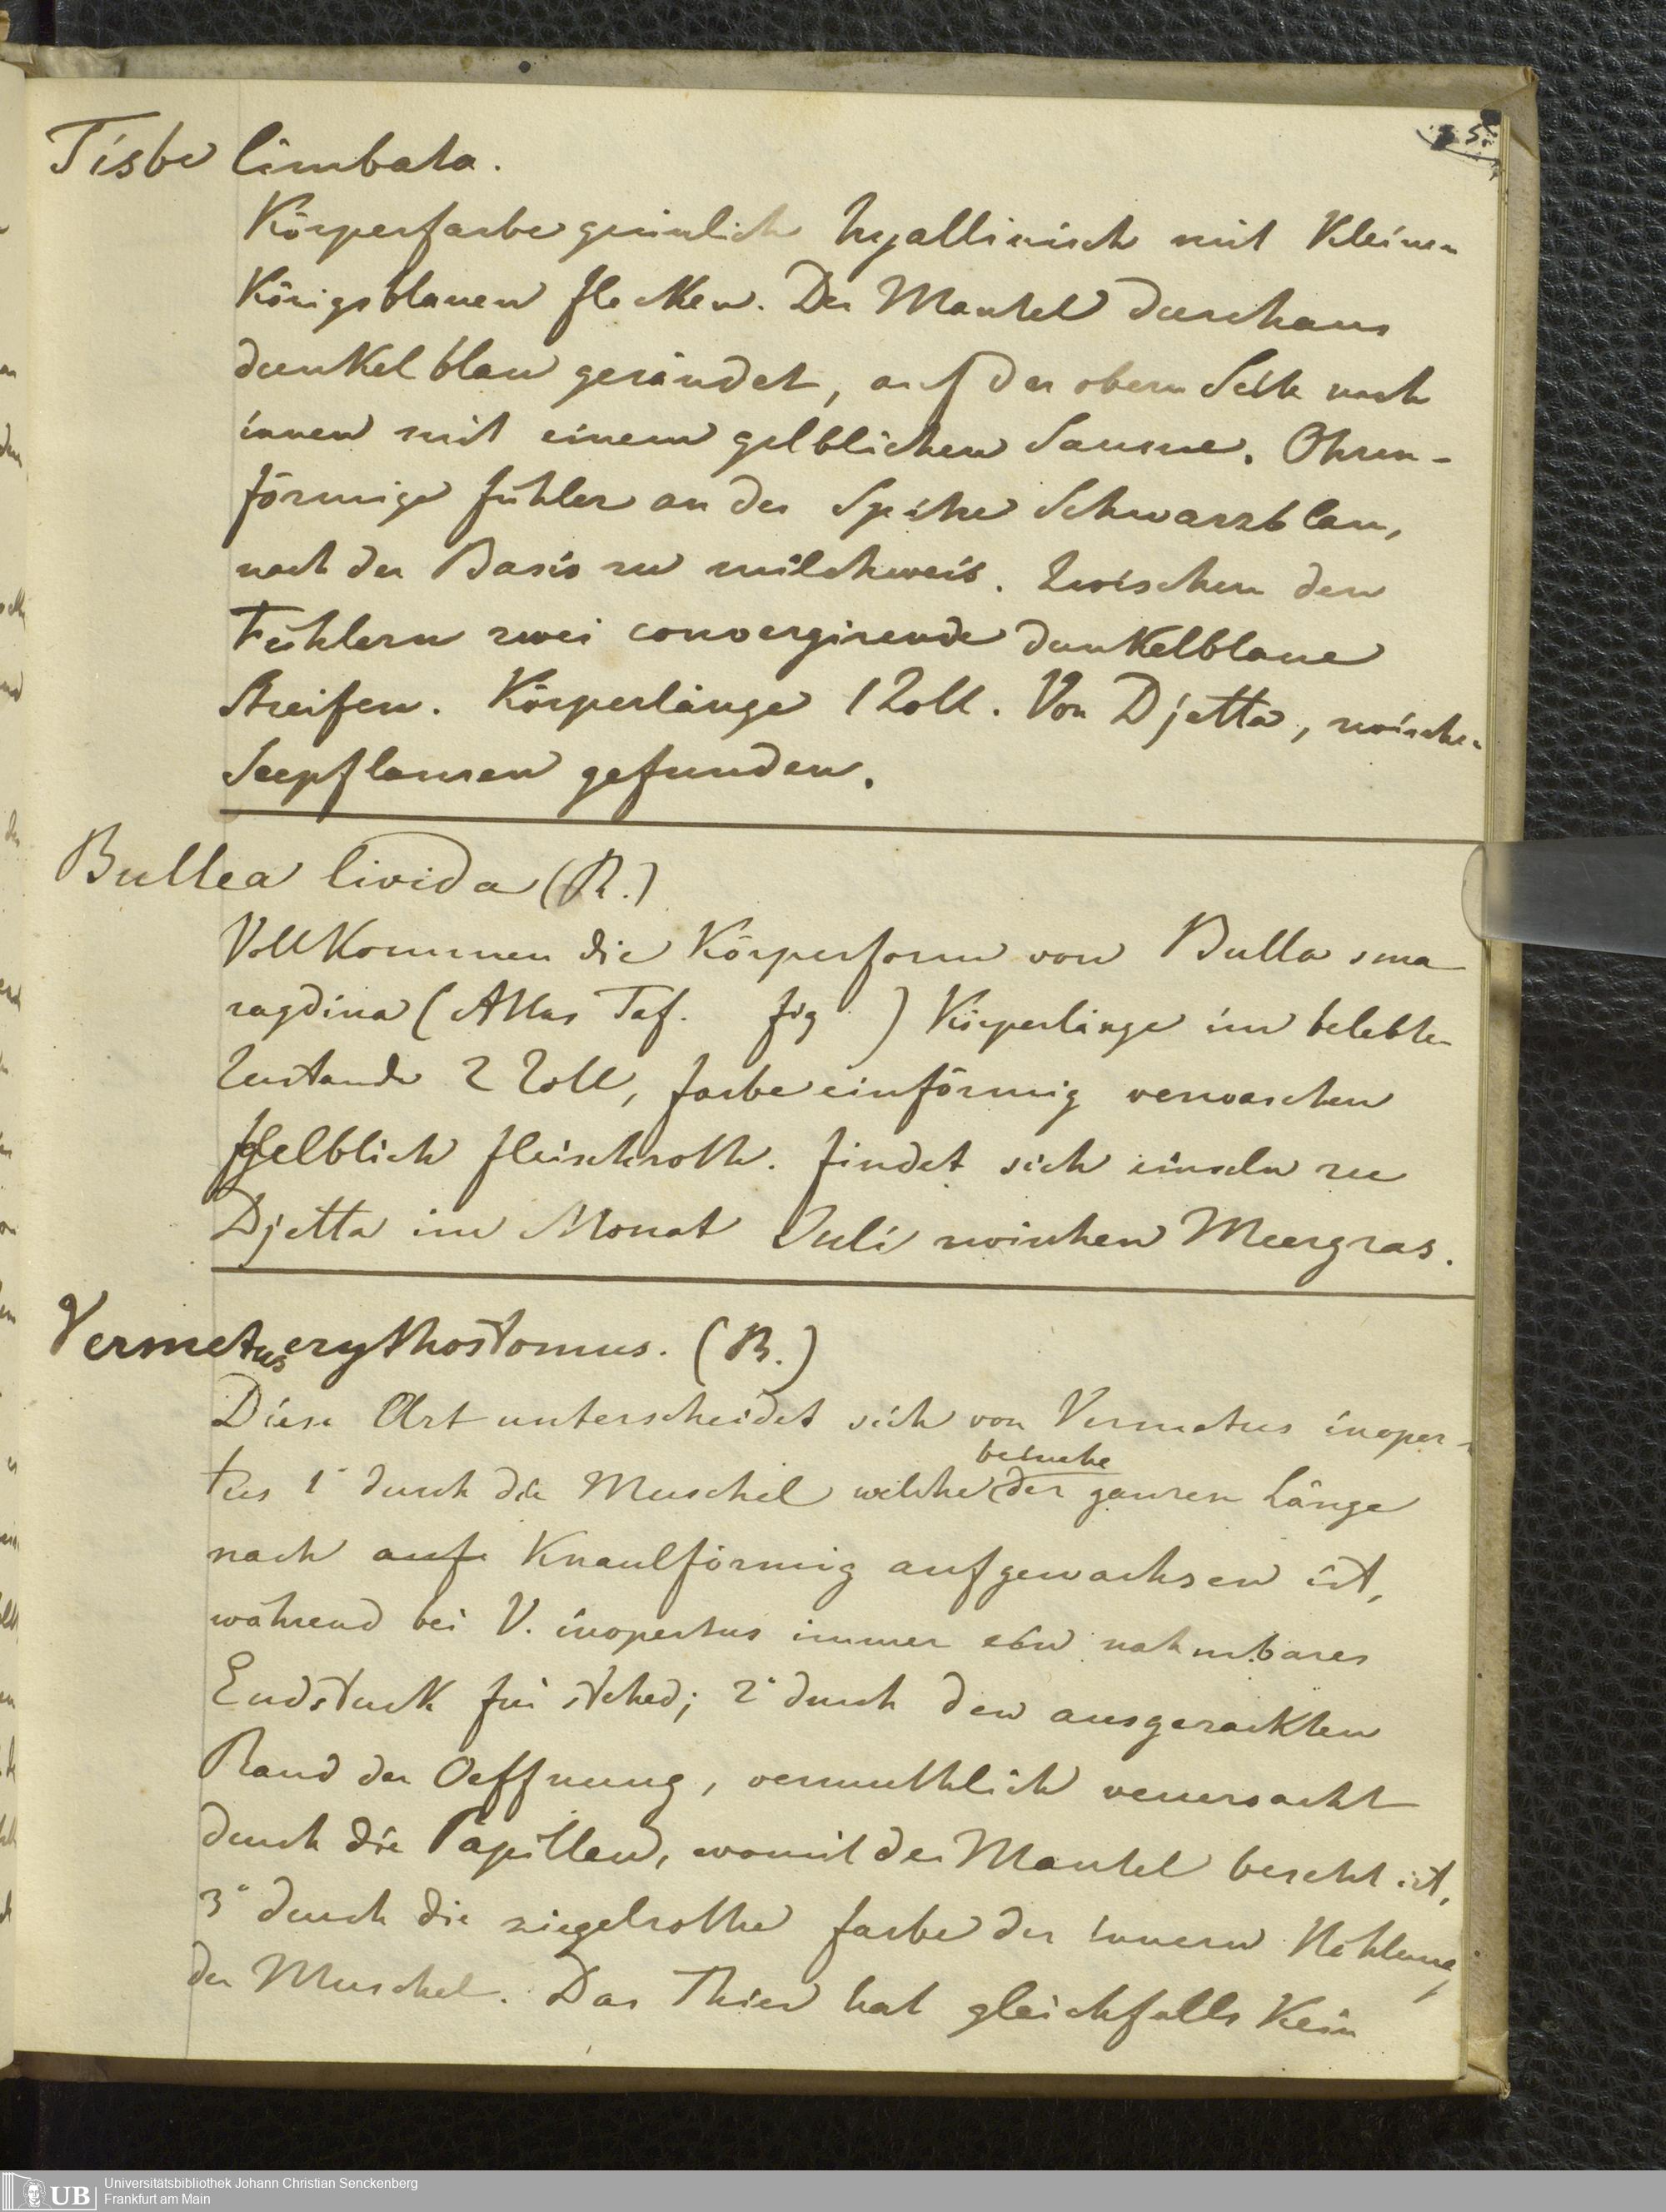 Tisbe limbata.
Körperfarbe grünlich hyallinisch mit kleinen
königsblauen flecken. Der Mantel durchaus
dunkelblau gerändet, auf der obern Seite nach
innen mit einem gelblichen Saume. Ohren-
förmige fühler an der Spitze Schwarzblau,
nach der Basis zu milchweis. Zwischen den
Fühlern zwei convergirende dunkelblaue
Streifen. Körperlänge 1 Zoll. Von Djetta, zwischen
Seepflanzen gefunden.
Bullea livida (R.)
Vollkommen die Körperform von Bulla sma
ragdina (Atlas Taf. fig ) Körperlänge im belebten
Zustande 2 Zoll, farbe einförmig verwaschen
gelblich fleischroth. findet sich einzeln zu
Djetta im Monat Juli zwischen Meergras.
Vermetus erythostomus. (R.)
Diese Art unterscheidet sich von Vermetus inoper-
tus 1° durch die Muschel welche beinahe der ganzen Länge
nach auf knaulförmig aufgewachsen ist,
während bei V. inopertus immer ein nahmbares
Endstuck frei stehed; 2° durch den ausgezackten
Rand der Oeffnung, vermuthlich verursacht
durch die Papillen, womit der Mantel besetzt ist,
3° durch die ziegelrothe farbe der innern Höhlung
der Muschel. Das Thier hat gleichfalls kein
Universitätsbibliothek Johann Christian Senckenberg
Frankfurt am Main
UB